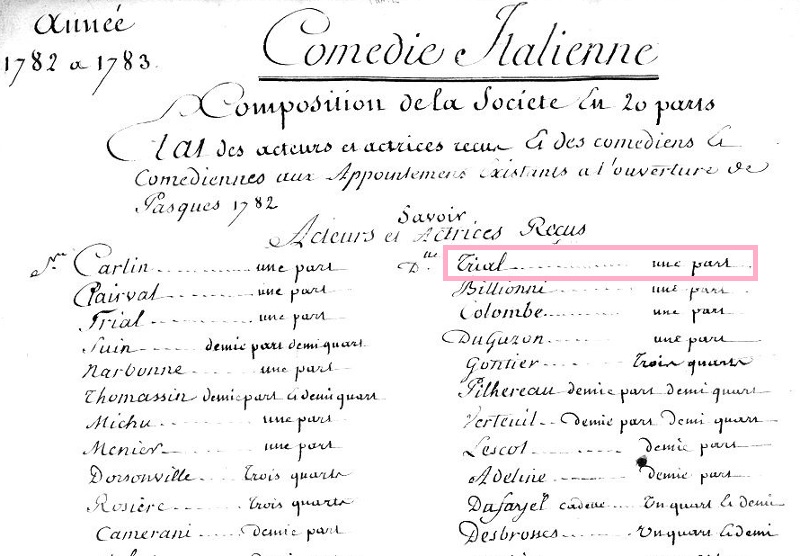 Année
1782 a 1783.
Comedie Italienne
Composition de la Societe En 20 parts
Etat des acteurs et actrices recue & des comediens &
Comediennes aux Appointemens Existants a l'ouverture de
Pasques 1782
Savoir
Acteurs et Actrices Reçus
Srs Carlin ........ une part
Clairval ........ une part
Trial ........ une part
Suin ..... demie part demi quart
Narbonne ........ une part
Thomassin demie part & demi quart
Michu ........ une part
Menier ........ une part
Dorsonville ... trois quarts
Rosière ...... trois quarts
Camerani ..... demie part
Dlles Trial ............ une part
Billionni ........ une part
Colombe ........ une part
DuGazon ........ une part
Gontier ........ trois quarts
Pilhereau demie part demi quart
Verteuil ... demie part demi quart
Lescot ........ demie part
Adeline ........ demie part
Dafayel cadette .... Un quart & demi
Desbrosses .... Un quart & demi